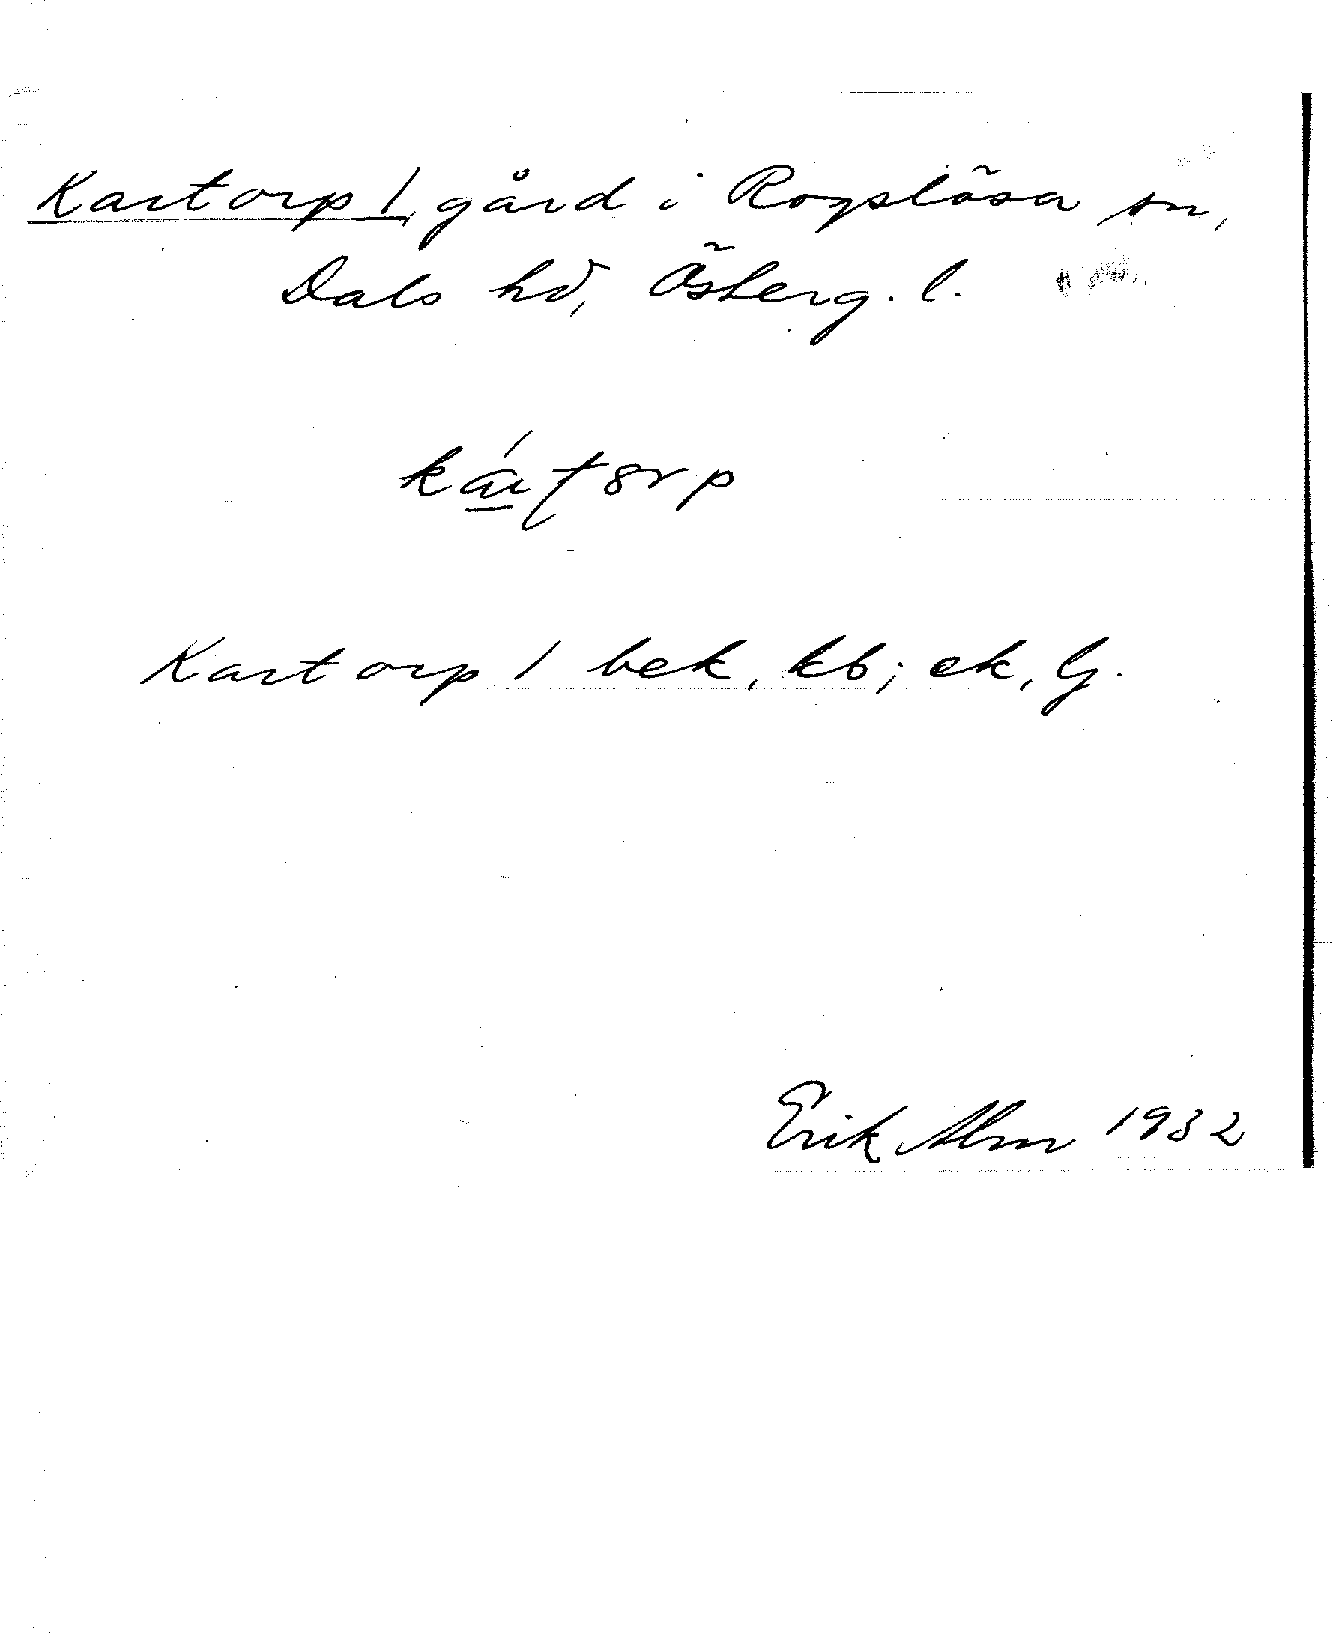 Kartorp 1, gård i Rogslösa sn,
Dals hd, Österg. l.
Kartorp 1 bek, kb; ek, Gj.
Erik Alm 1932